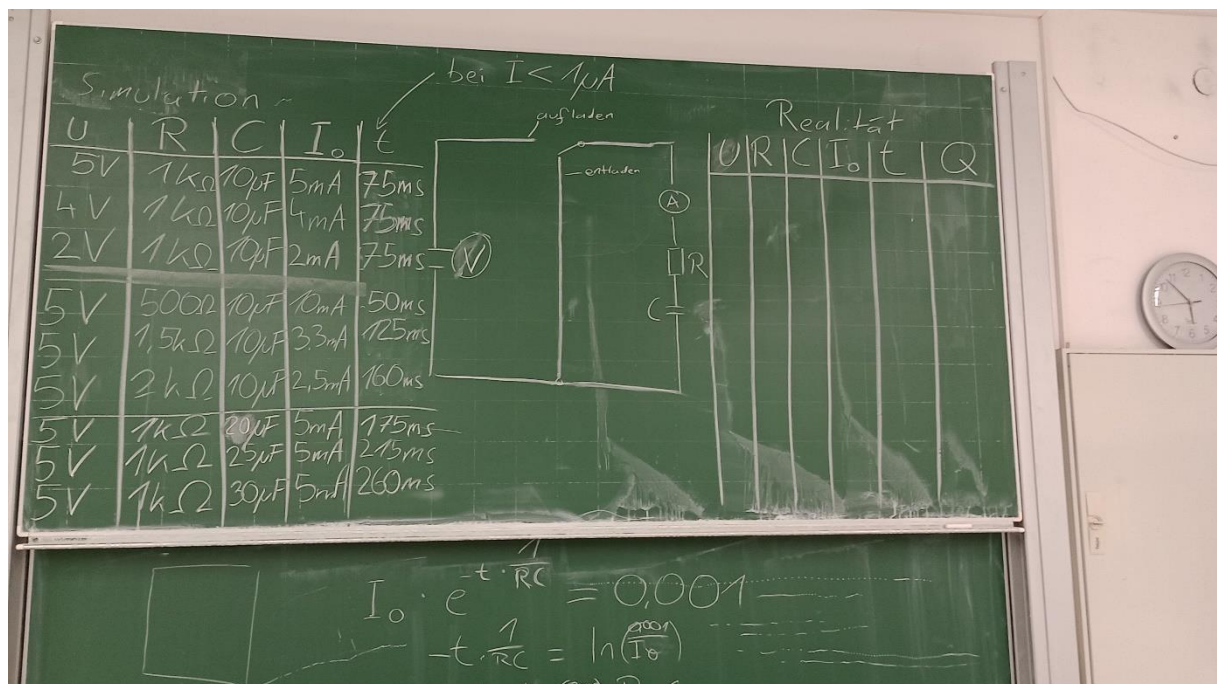 Simulation
bei I < 1µA
U R C I₀ t
5V 1kΩ 10µF 5mA 75ms
4V 1kΩ 10µF 4mA 75ms
2V 1kΩ 10µF 2mA 75ms
5V 500Ω 10µF 10mA 50ms
5V 1,5kΩ 10µF 3.3mA 125ms
5V 2kΩ 10µF 2,5mA 160ms
5V 1kΩ 20µF 5mA 175ms
5V 1kΩ 25µF 5mA 215ms
5V 1kΩ 30µF 5mA 260ms
aufladen
entladen
V
A
R
C
Realität
U R C I₀ t Q
I₀ · e^(-t · 1/RC) = 0,001
-t · 1/RC = ln(0,001/I₀)